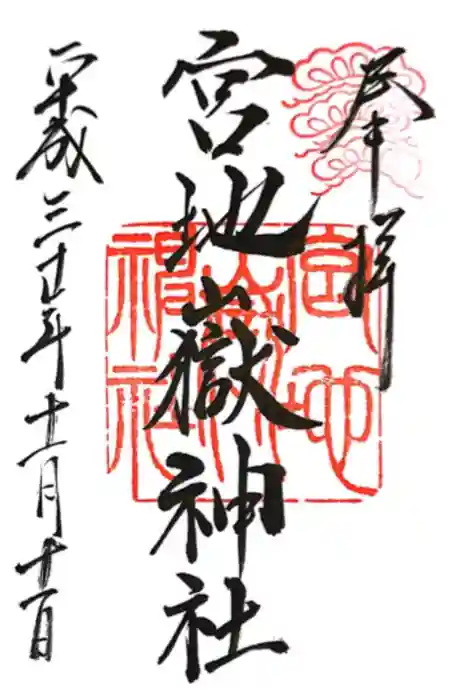 奉拝
宮地嶽神社
宮地嶽神社
平成三十年十一月十一日